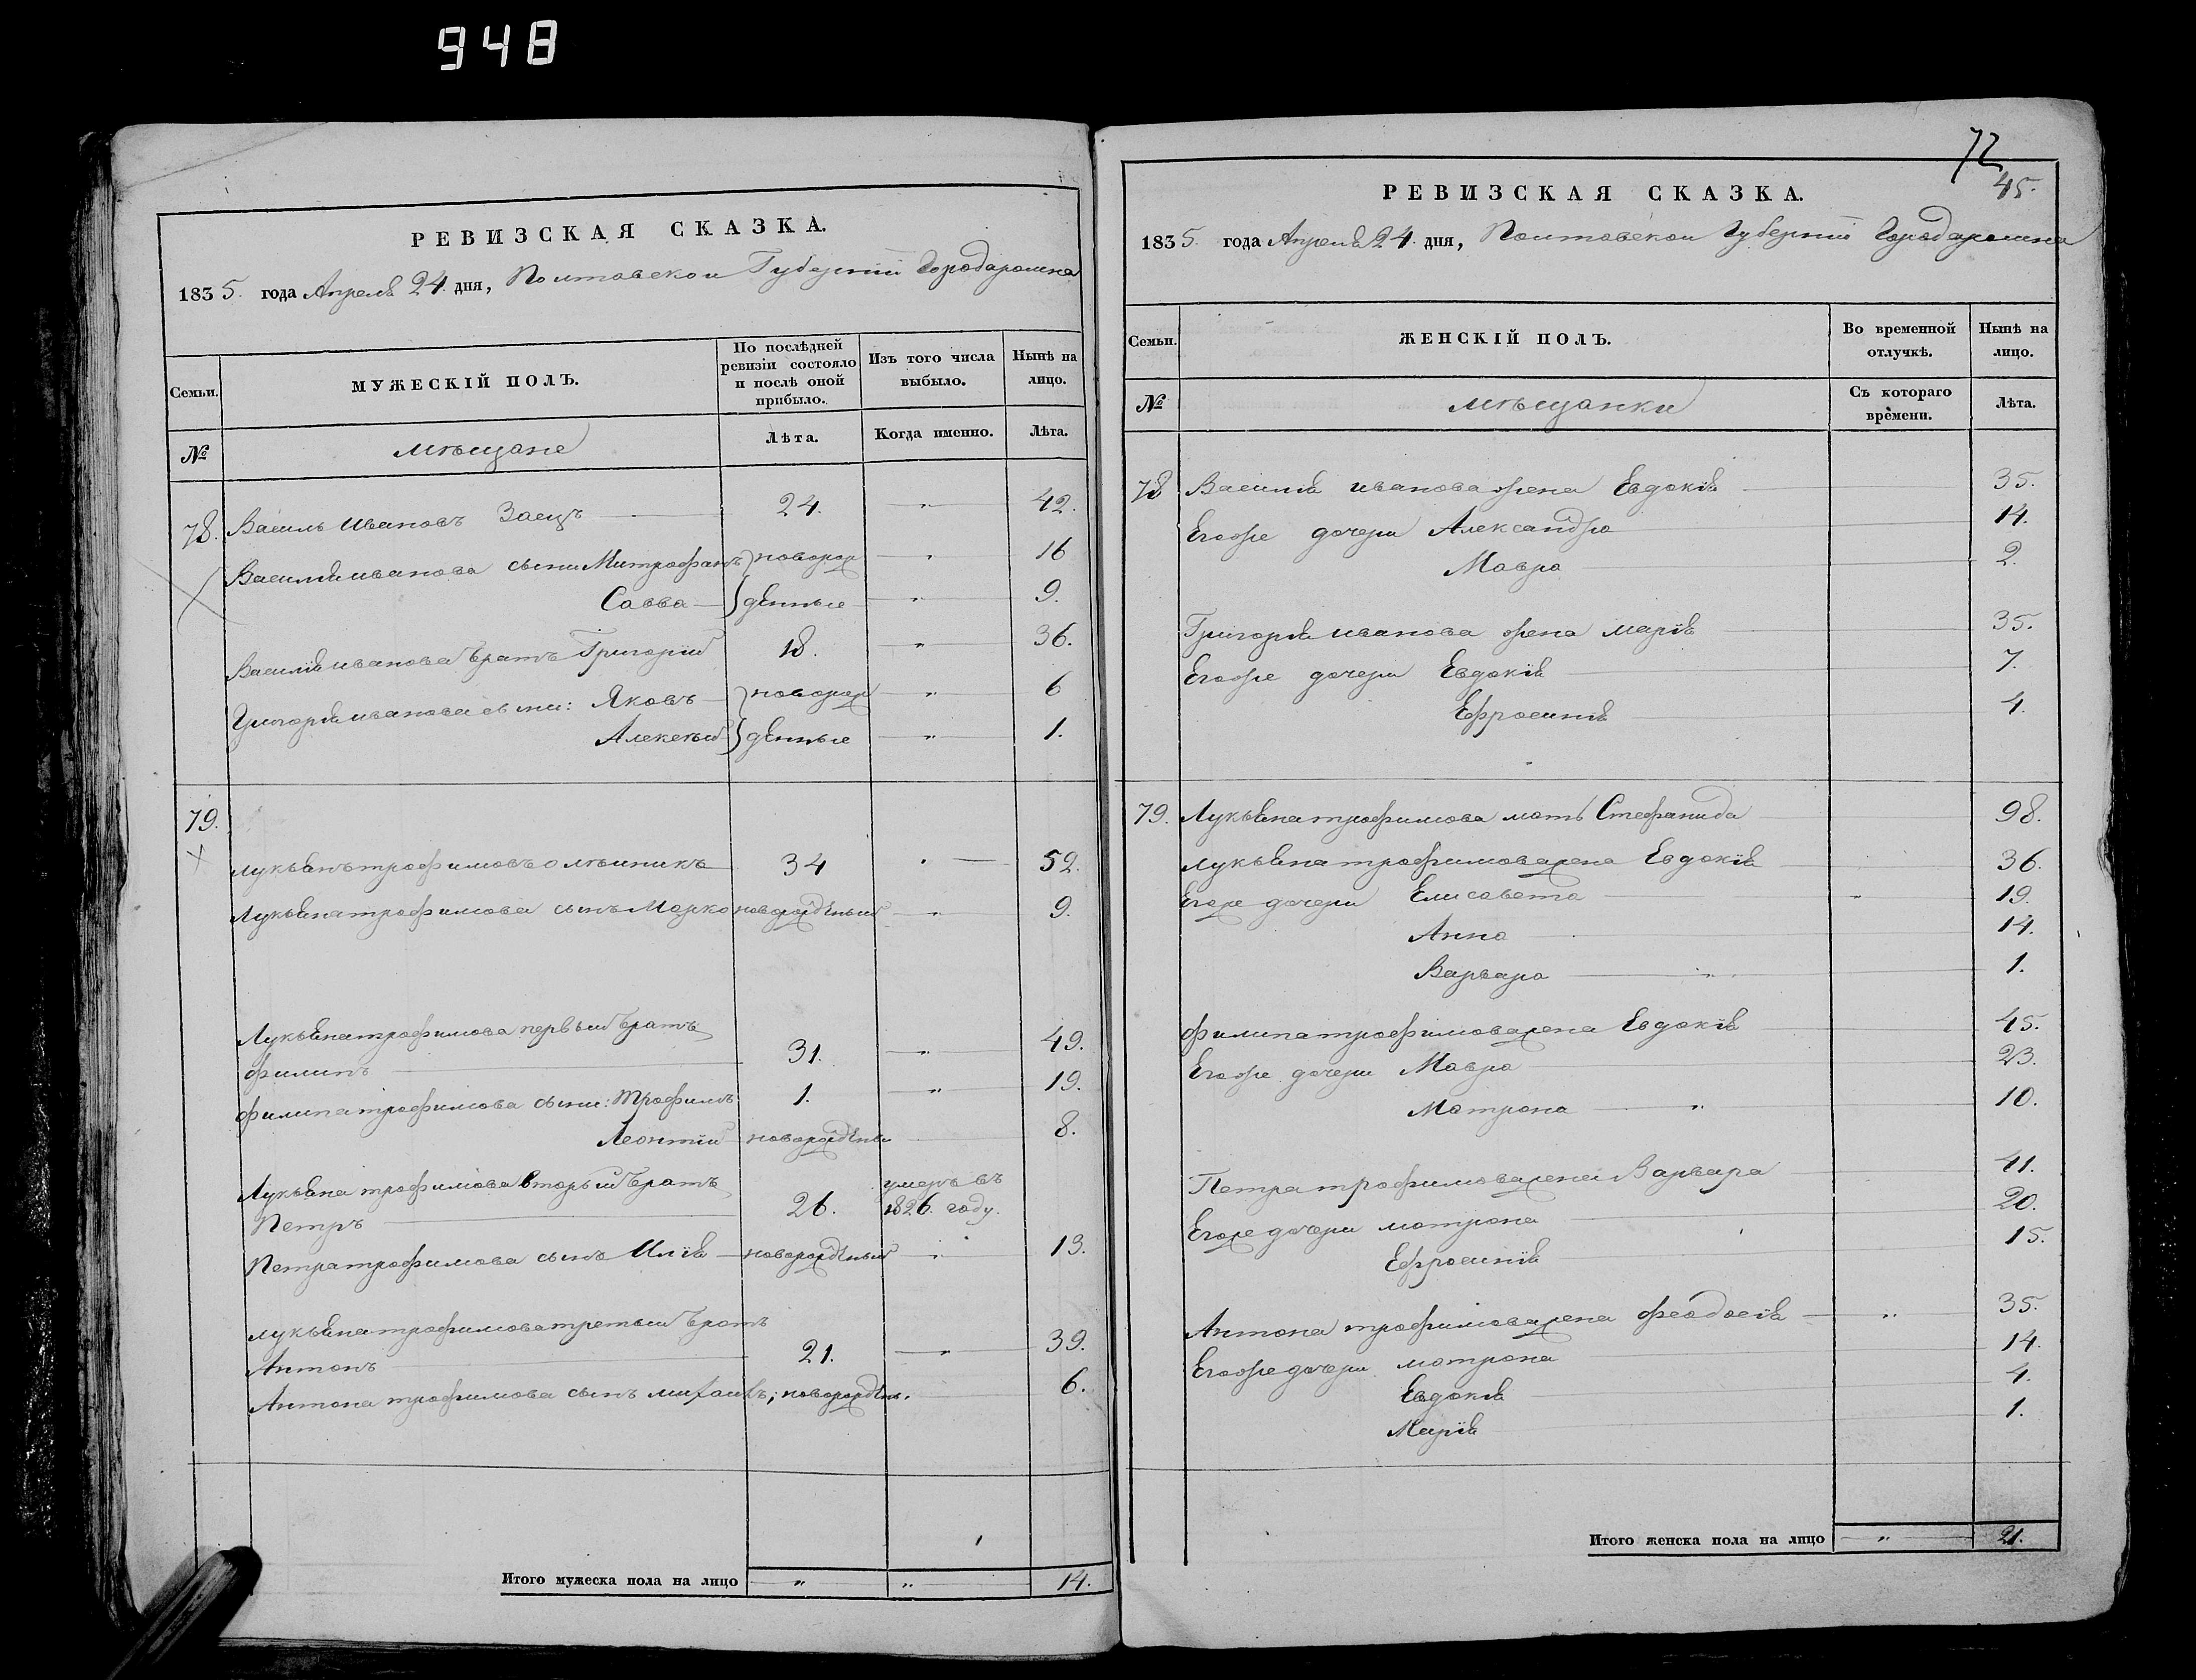 948
РЕВИЗСКАЯ СКАЗКА.
1835. года Апреля 24. дня, Полтавской Губернии Города
МУЖЕСКІЙ ПОЛЪ.
Семьи.
По послѣдней ревизіи состояло и послѣ оной прибыло.
Изъ того числа выбыло.
Нынѣ на лицо.
№
мѣщане
Лѣта.
Когда именно.
Лѣта.
78. Василь Ивановъ Заецъ 24. " 42.
Василия иванова сыни Митрофанъ новорож " 16
Савва денные " 9.
Василія иванова братъ Григорій 18. " 36.
Григорія иванова сыни: Яковъ новорож " 6
Алексѣй денные " 1.
79.
лукьянъ трофимовъ олѣйникъ 34 " 52.
Лукьяна трофимова сынъ Марко новорожденый " 9.
Лукьяна трофимова первый братъ
филипъ 31. " 49.
филипа трофимова сыни: Трофимъ 1. " 19.
Леонтій новорожденый 8.
Лукьяна трофимова вторый братъ
Петръ 26. умеръ въ 1826. году.
Петра трофимова сынъ Илія новорожденый " 13.
лукьяна трофимова третый братъ
Антонъ 21. " 39.
Антона трофимова сынъ михаилъ; новорожден. 6.
Итого мужеска пола на лицо " " 14.
72
45.
РЕВИЗСКАЯ СКАЗКА.
1835. года Апреля 24. дня, Полтавской Губерніи Города
Семьи.
ЖЕНСКІЙ ПОЛЪ.
Во временной отлучкѣ.
Нынѣ на лицо.
№
мѣщанки
Съ котораго времени.
Лѣта.
78 Василія иванова жена Евдокія 35.
Егоже дочери Александра 14.
Мавра 2.
Григорія иванова жена марія 35.
Егоже дочери Евдокія 7.
Ефросинія 4.
79. Лукьяна трофимова мать Стефанида 98.
лукьяна трофимова жена Евдокія 36.
Егоже дочери Елисавета " 19.
Анна 14.
Варвара " 1.
филипа трофимова жена Евдокія 45.
Егоже дочери Мавра 23.
Матрона " 10.
Петра трофимова жена Варвара 41.
Егоже дочери матрона 20.
Ефросинія 15.
Антона трофимова жена феодосія " 35.
Егоже дочери матрона 14.
Евдокія 4.
Марія 1.
Итого женска пола на лицо " 21.